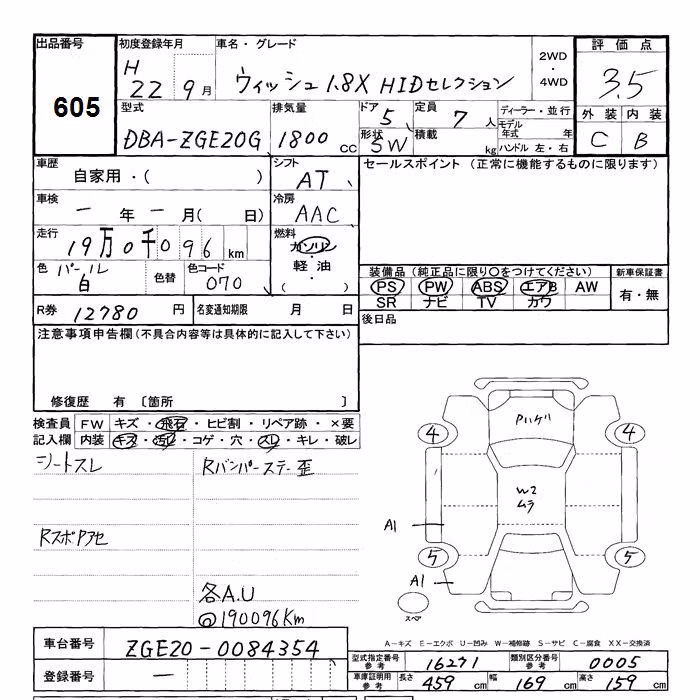 出品番号 初度登録年月 車名・グレード 2WD・4WD 評価点
605 H 22 9月 ウィッシュ 1.8X HIDセレクション 3.5
型式 排気量 ドア 5 定員 7人 ディーラー・並行 外装 内装
DBA-ZGE20G 1800cc 形状 SW 積載 kg モデル年式 年 C B
ハンドル 左・右
車歴 自家用・( ) シフト AT セールスポイント (正常に機能するものに限ります)
車検 ー年ー月( 日) 冷房 AAC
走行 19万0千096km 燃料 ガソリン・軽油・( )
色 パール白 色替 色コード 070 装備品 (純正品に限り〇をつけてください) 新車保証書
PS PW ABS エアB AW 有・無
SR ナビ TV カワ
R券 12780円 名変通知期限 月 日 後日品
注意事項申告欄(不具合内容等は具体的に記入して下さい)
修復歴 有 〔箇所 〕
検査員 FW キズ・飛石・ヒビ割・リペア跡・×要
記入欄 内装 キズ・汚れ・コゲ・穴・スレ・キレ・破レ
シートスレ Rバンパーステー歪
Rスポアアセ
各A.U
@190096Km
Pハゲ
4 4
W2
ムラ
A1
5 5
A1
スペア
A-キズ E-エクボ U-凹み W-補修跡 S-サビ C-腐食 XX-交換済
車台番号 ZGE20-0084354 型式指定番号 参考 16271 類別区分番号 参考 0005
登録番号 ー 車庫証明用 参考 長さ 459cm 幅 169cm 高さ 159cm